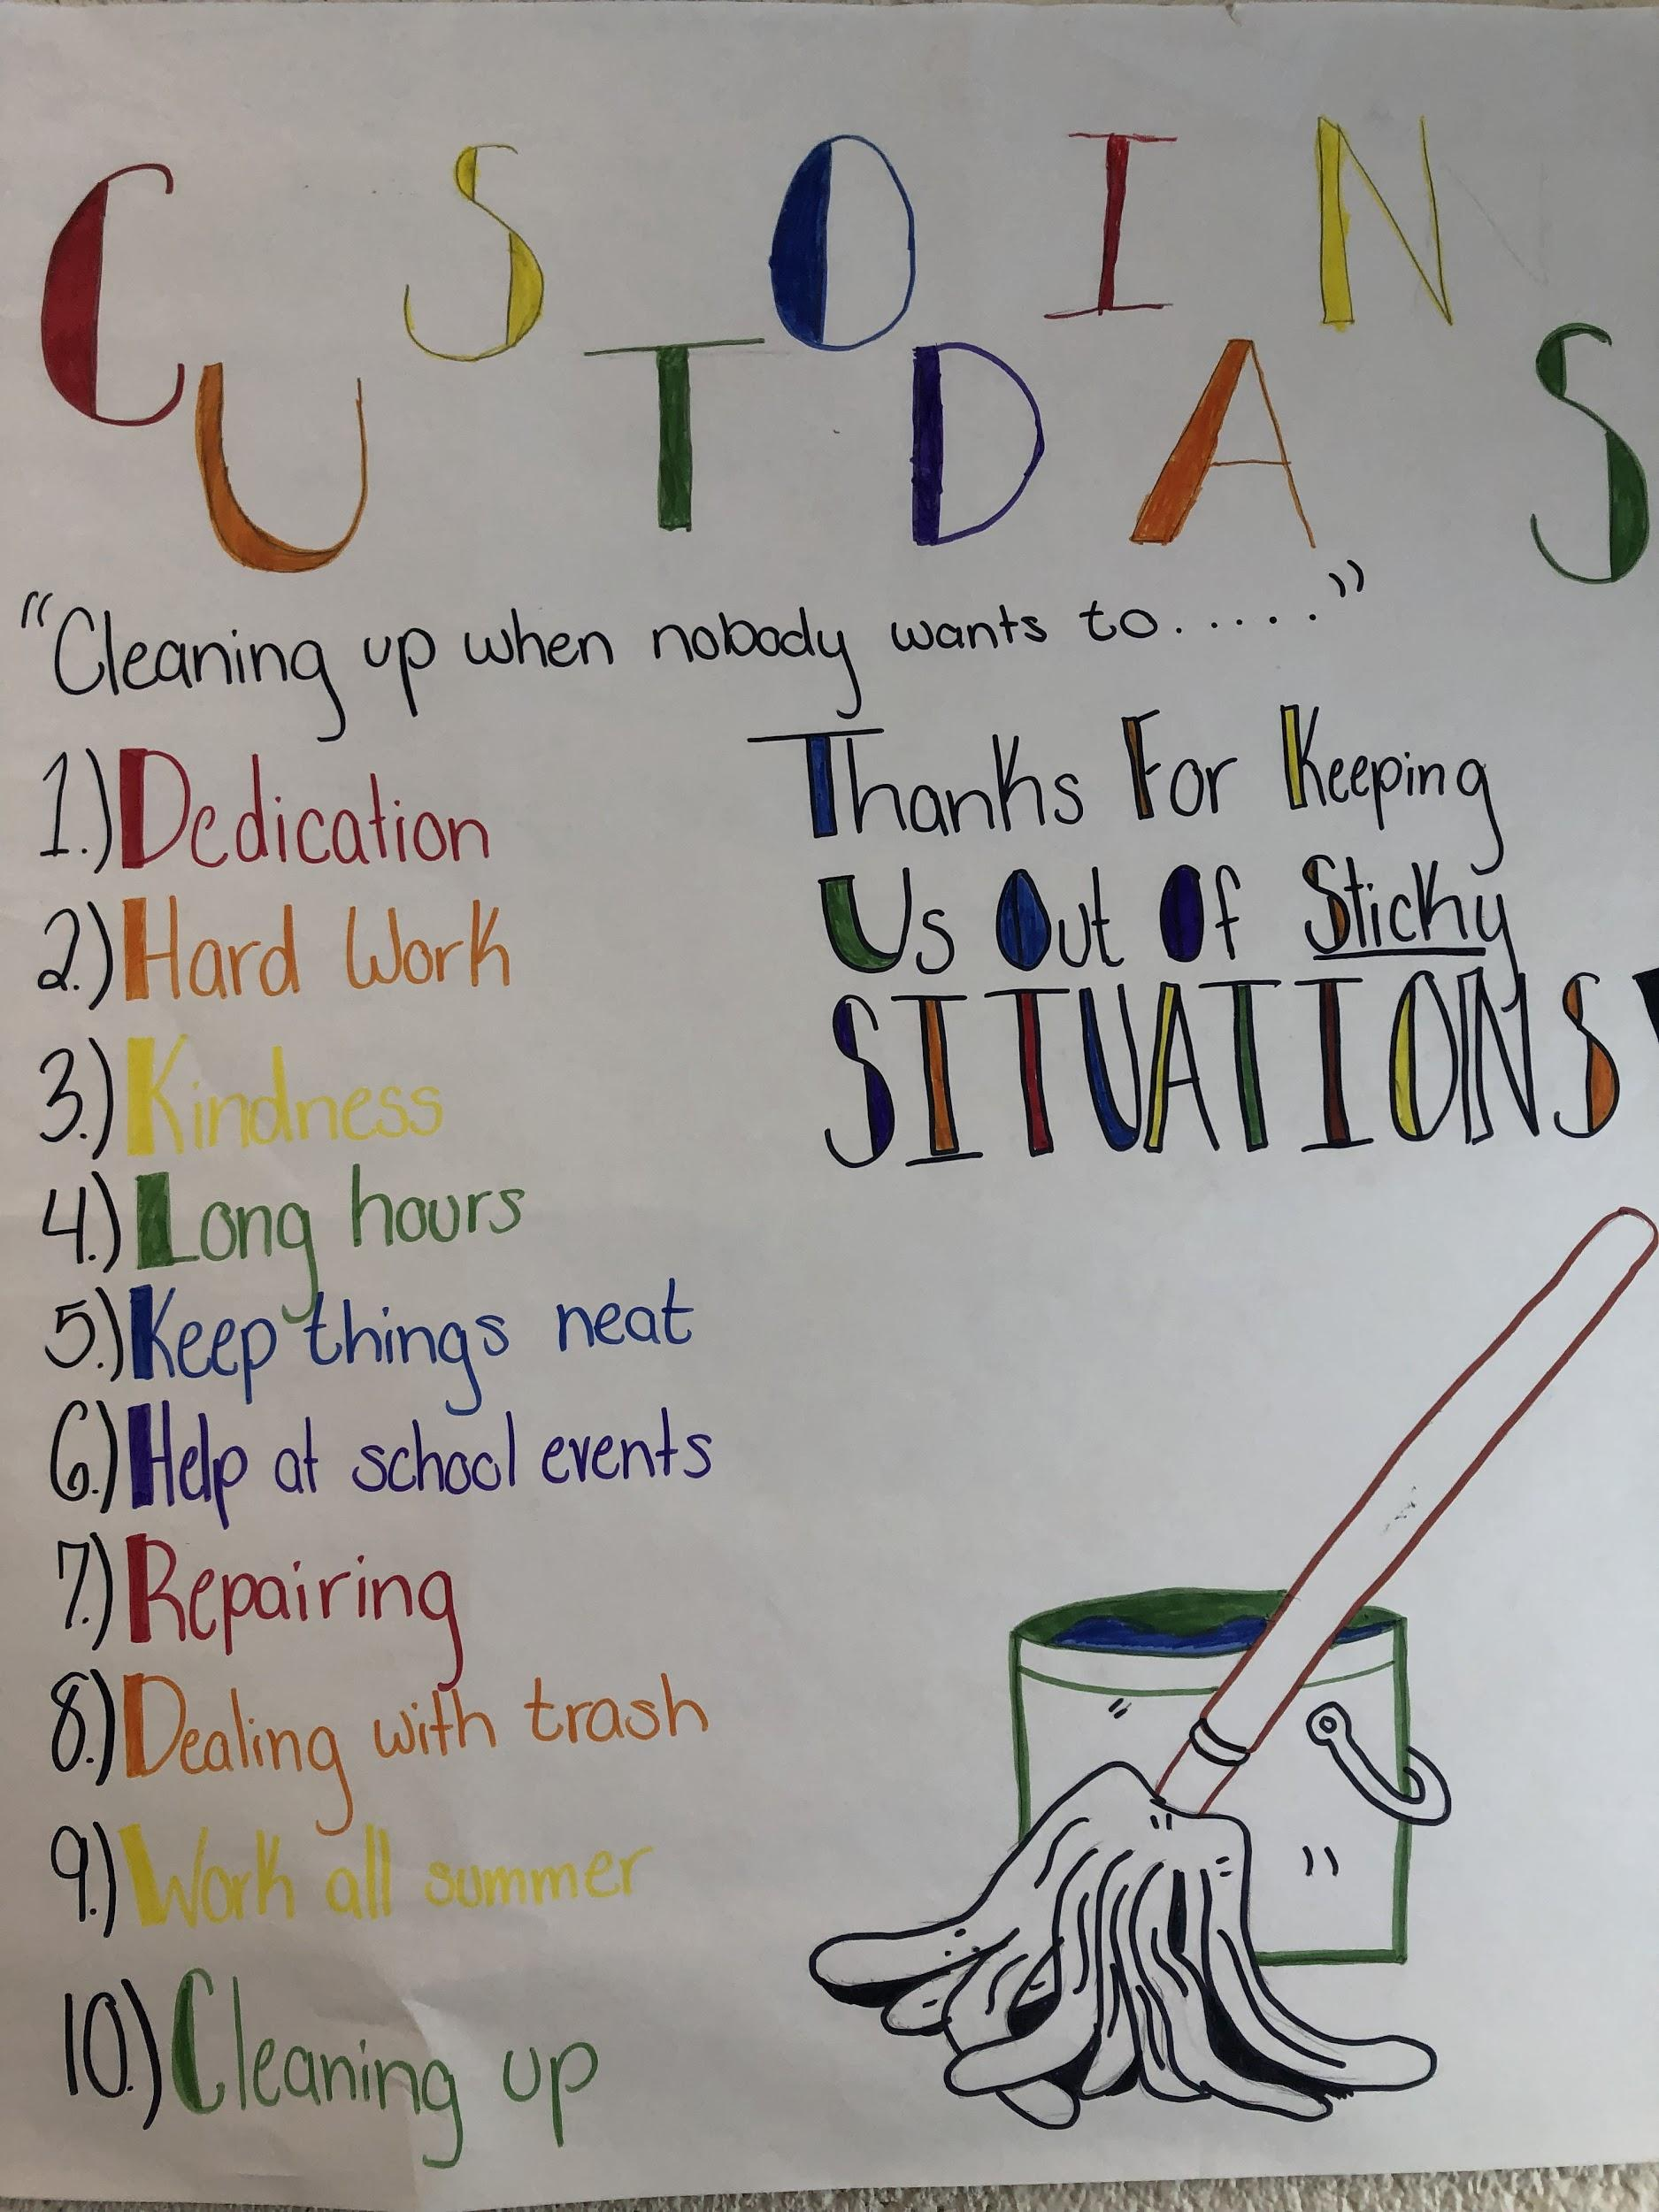 CUSTODIANS
"Cleaning up when nobody wants to....."
1.) Dedication
2.) Hard Work
3.) Kindness
4.) Long hours
5.) Keep things neat
6.) Help at school events
7.) Repairing
8.) Dealing with trash
9.) Work all summer
10.) Cleaning up
Thanks For Keeping
Us Out Of Sticky
SITUATIONS